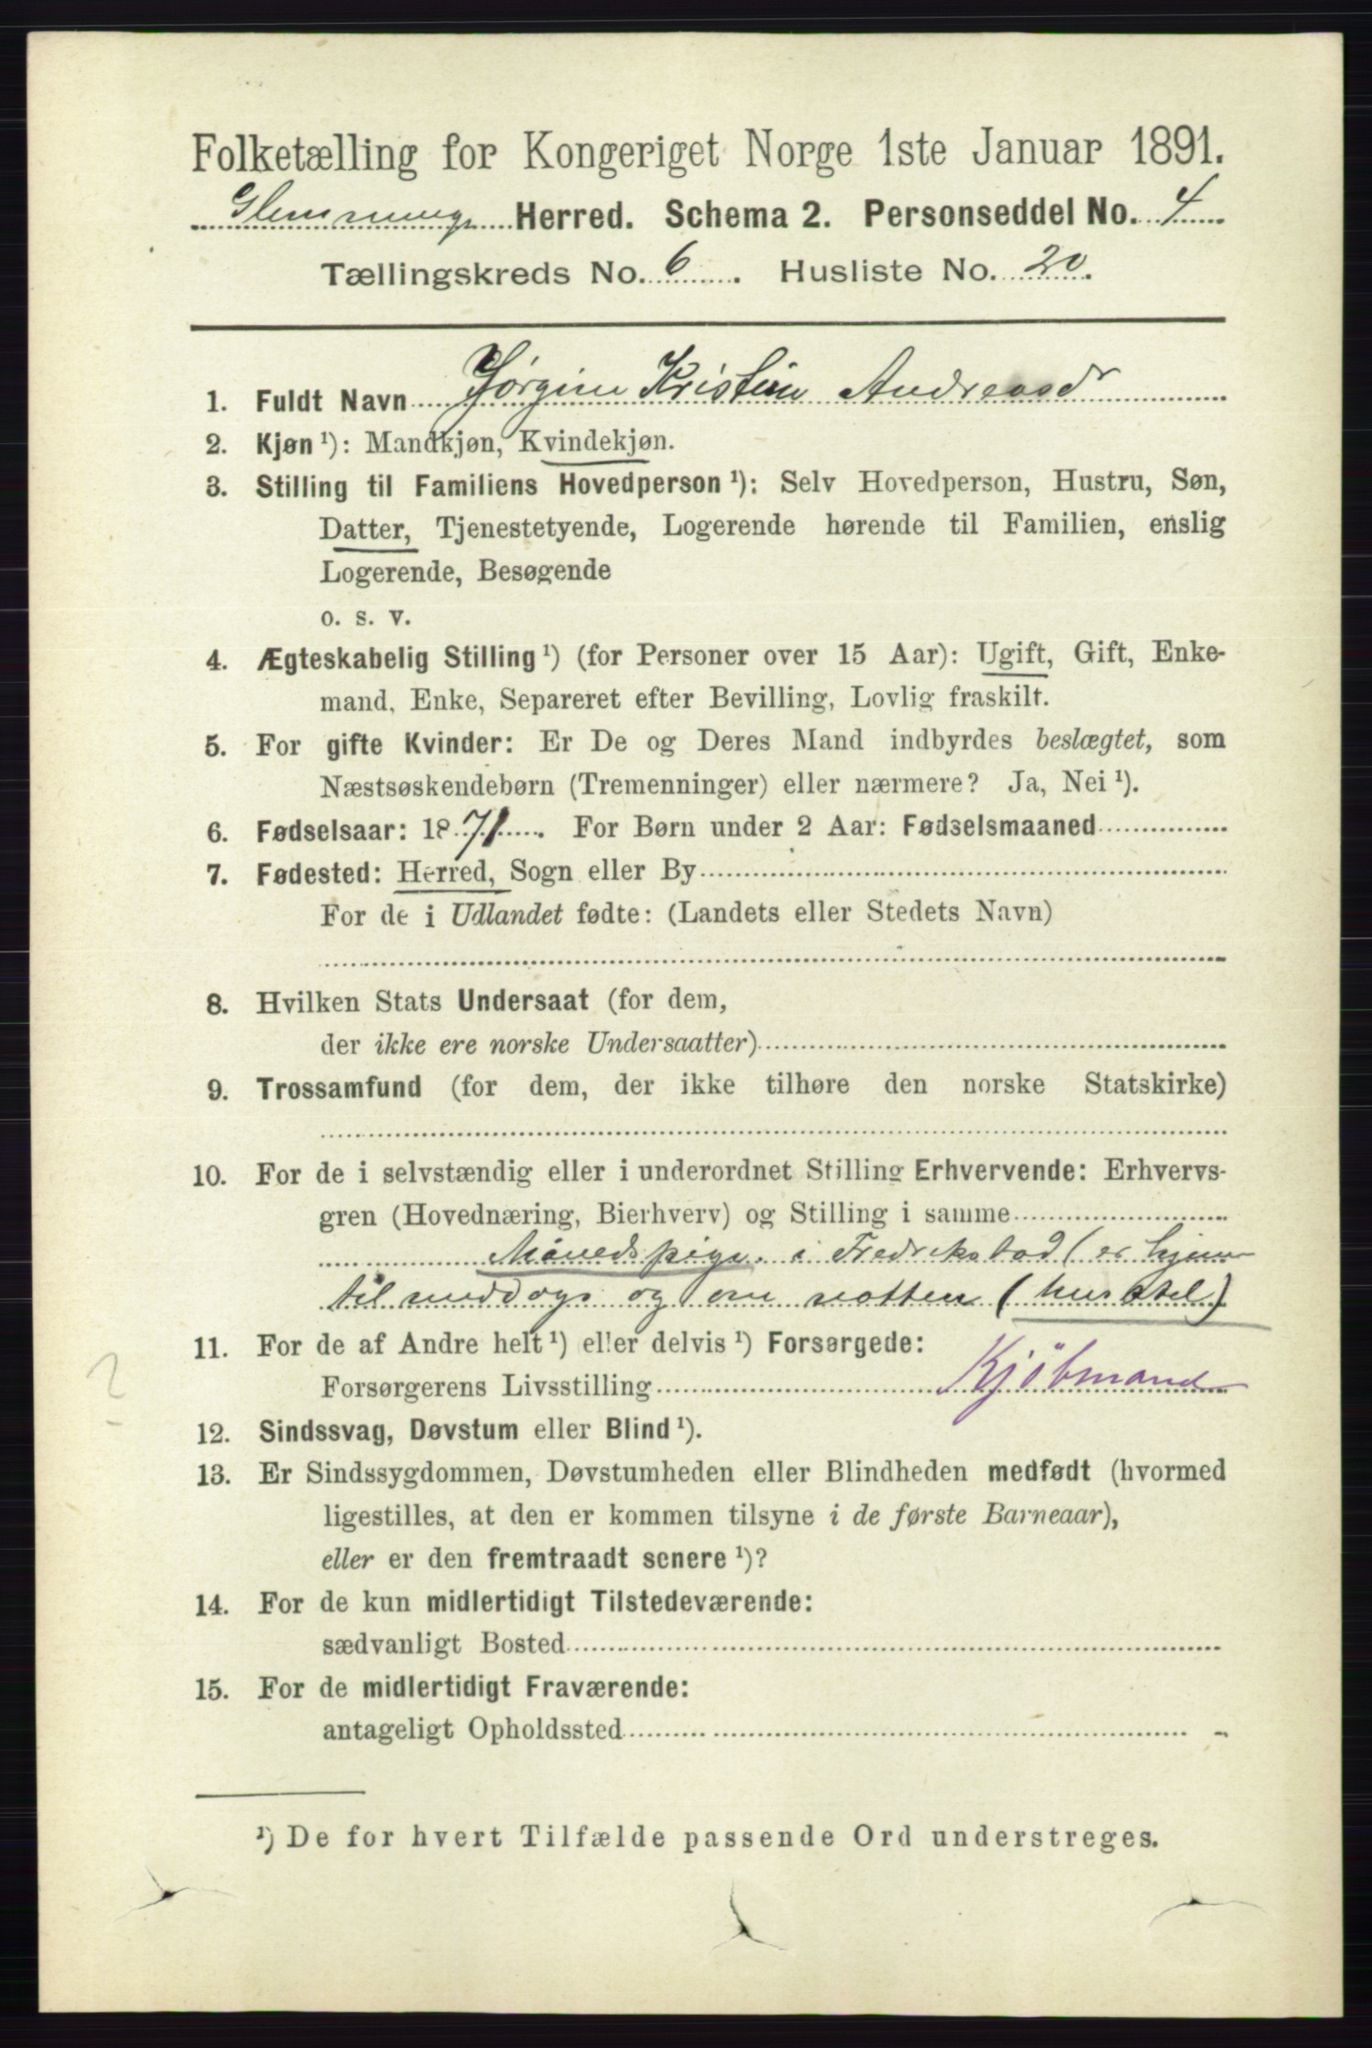 Folketælling for Kongeriget Norge 1ste Januar 1891.
Glemminge Herred. Schema 2. Personseddel No. 4
Tællingskreds No. 6. Husliste No. 20.
1. Fuldt Navn Jørgine Kristine Andreasdr
2. Kjøn ¹): Mandkjøn, Kvindekjøn.
3. Stilling til Familiens Hovedperson ¹): Selv Hovedperson, Hustru, Søn,
Datter, Tjenestetyende, Logerende hørende til Familien, enslig
Logerende, Besøgende
o. s. v.
4. Ægteskabelig Stilling ¹) (for Personer over 15 Aar): Ugift, Gift, Enke-
mand, Enke, Separeret efter Bevilling, Lovlig fraskilt.
5. For gifte Kvinder: Er De og Deres Mand indbyrdes beslægtet, som
Næstsøskendebørn (Tremenninger) eller nærmere? Ja, Nei ¹).
6. Fødselsaar: 1871. For Børn under 2 Aar: Fødselsmaaned
7. Fødested: Herred, Sogn eller By
For de i Udlandet fødte: (Landets eller Stedets Navn)
8. Hvilken Stats Undersaat (for dem,
der ikke ere norske Undersaatter)
9. Trossamfund (for dem, der ikke tilhøre den norske Statskirke)
10. For de i selvstændig eller i underordnet Stilling Erhvervende: Erhvervs-
gren (Hovednæring, Bierhverv) og Stilling i samme
Månedspige i Fredrikstad (er hjemme
til middags og om natten (husstel)
11. For de af Andre helt ¹) eller delvis ¹) Forsørgede:
Forsørgerens Livsstilling Kjøbmand
12. Sindssvag, Døvstum eller Blind ¹).
13. Er Sindssygdommen, Døvstumheden eller Blindheden medfødt (hvormed
ligestilles, at den er kommen tilsyne i de første Barneaar),
eller er den fremtraadt senere ¹)?
14. For de kun midlertidigt Tilstedeværende:
sædvanligt Bosted
15. For de midlertidigt Fraværende:
antageligt Opholdssted
¹) De for hvert Tilfælde passende Ord understreges.